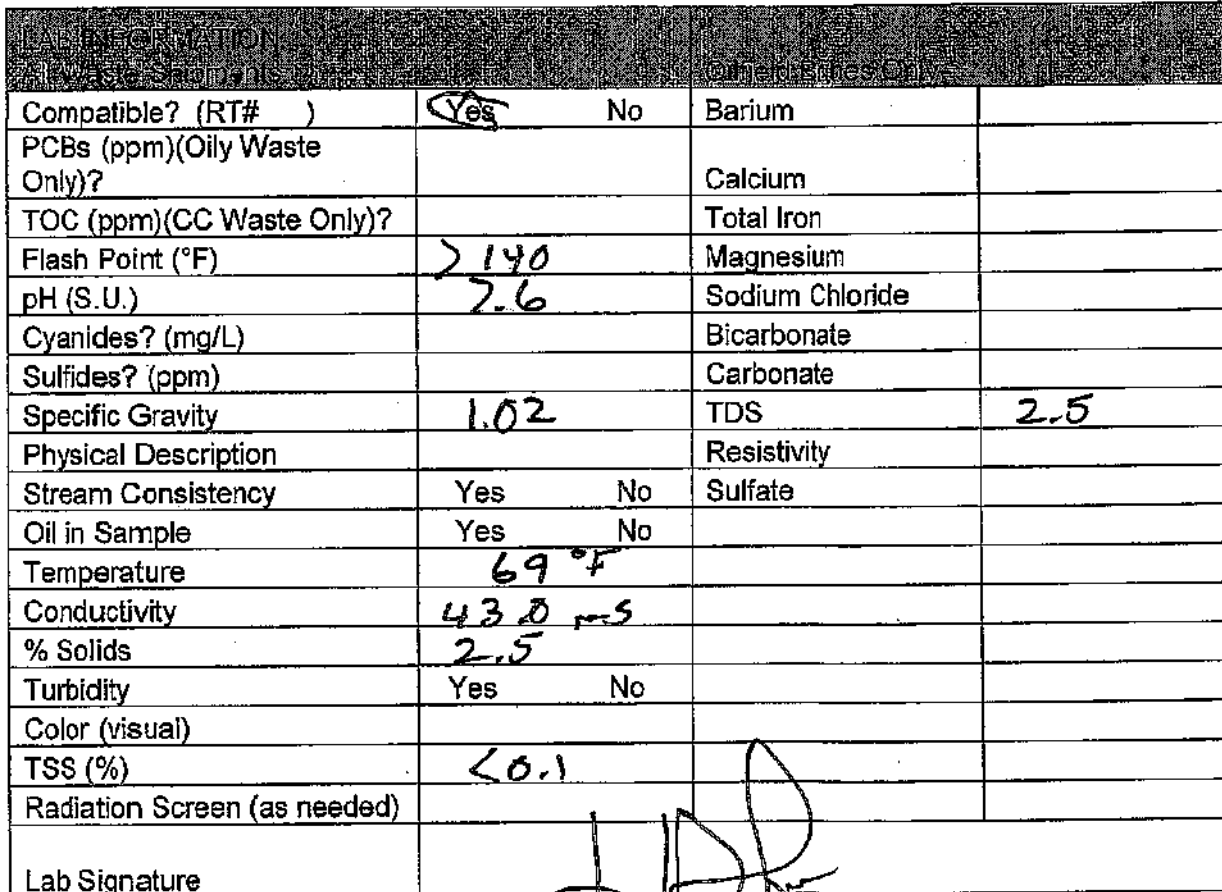 LAB INFORMATION
All Waste Shipments
Compatible? (RT# ) Yes No Barium
PCBs (ppm)(Oily Waste
Only)? Calcium
TOC (ppm)(CC Waste Only)? Total Iron
Flash Point (°F) >140 Magnesium
pH (S.U.) 7.6 Sodium Chloride
Cyanides? (mg/L) Bicarbonate
Sulfides? (ppm) Carbonate
Specific Gravity 1.02 TDS 2.5
Physical Description Resistivity
Stream Consistency Yes No Sulfate
Oil in Sample Yes No
Temperature 69 °F
Conductivity 43.0 mS
% Solids 2.5
Turbidity Yes No
Color (visual)
TSS (%) <0.1
Radiation Screen (as needed)
Lab Signature